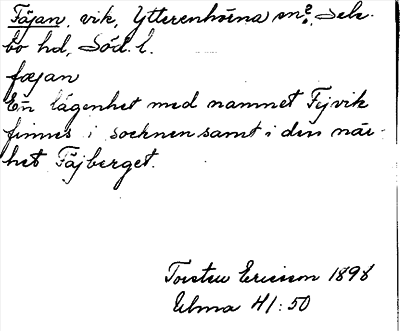 Fäjan, vik, Ytterenhörna sn?, Sele-
bo hd, Söd. l.
fæjan
En lägenhet med namnet Fejvik
finnes i socknen samt i den när-
het Fäjberget.
Torsten Ericsson 1898
Ulma 41:50